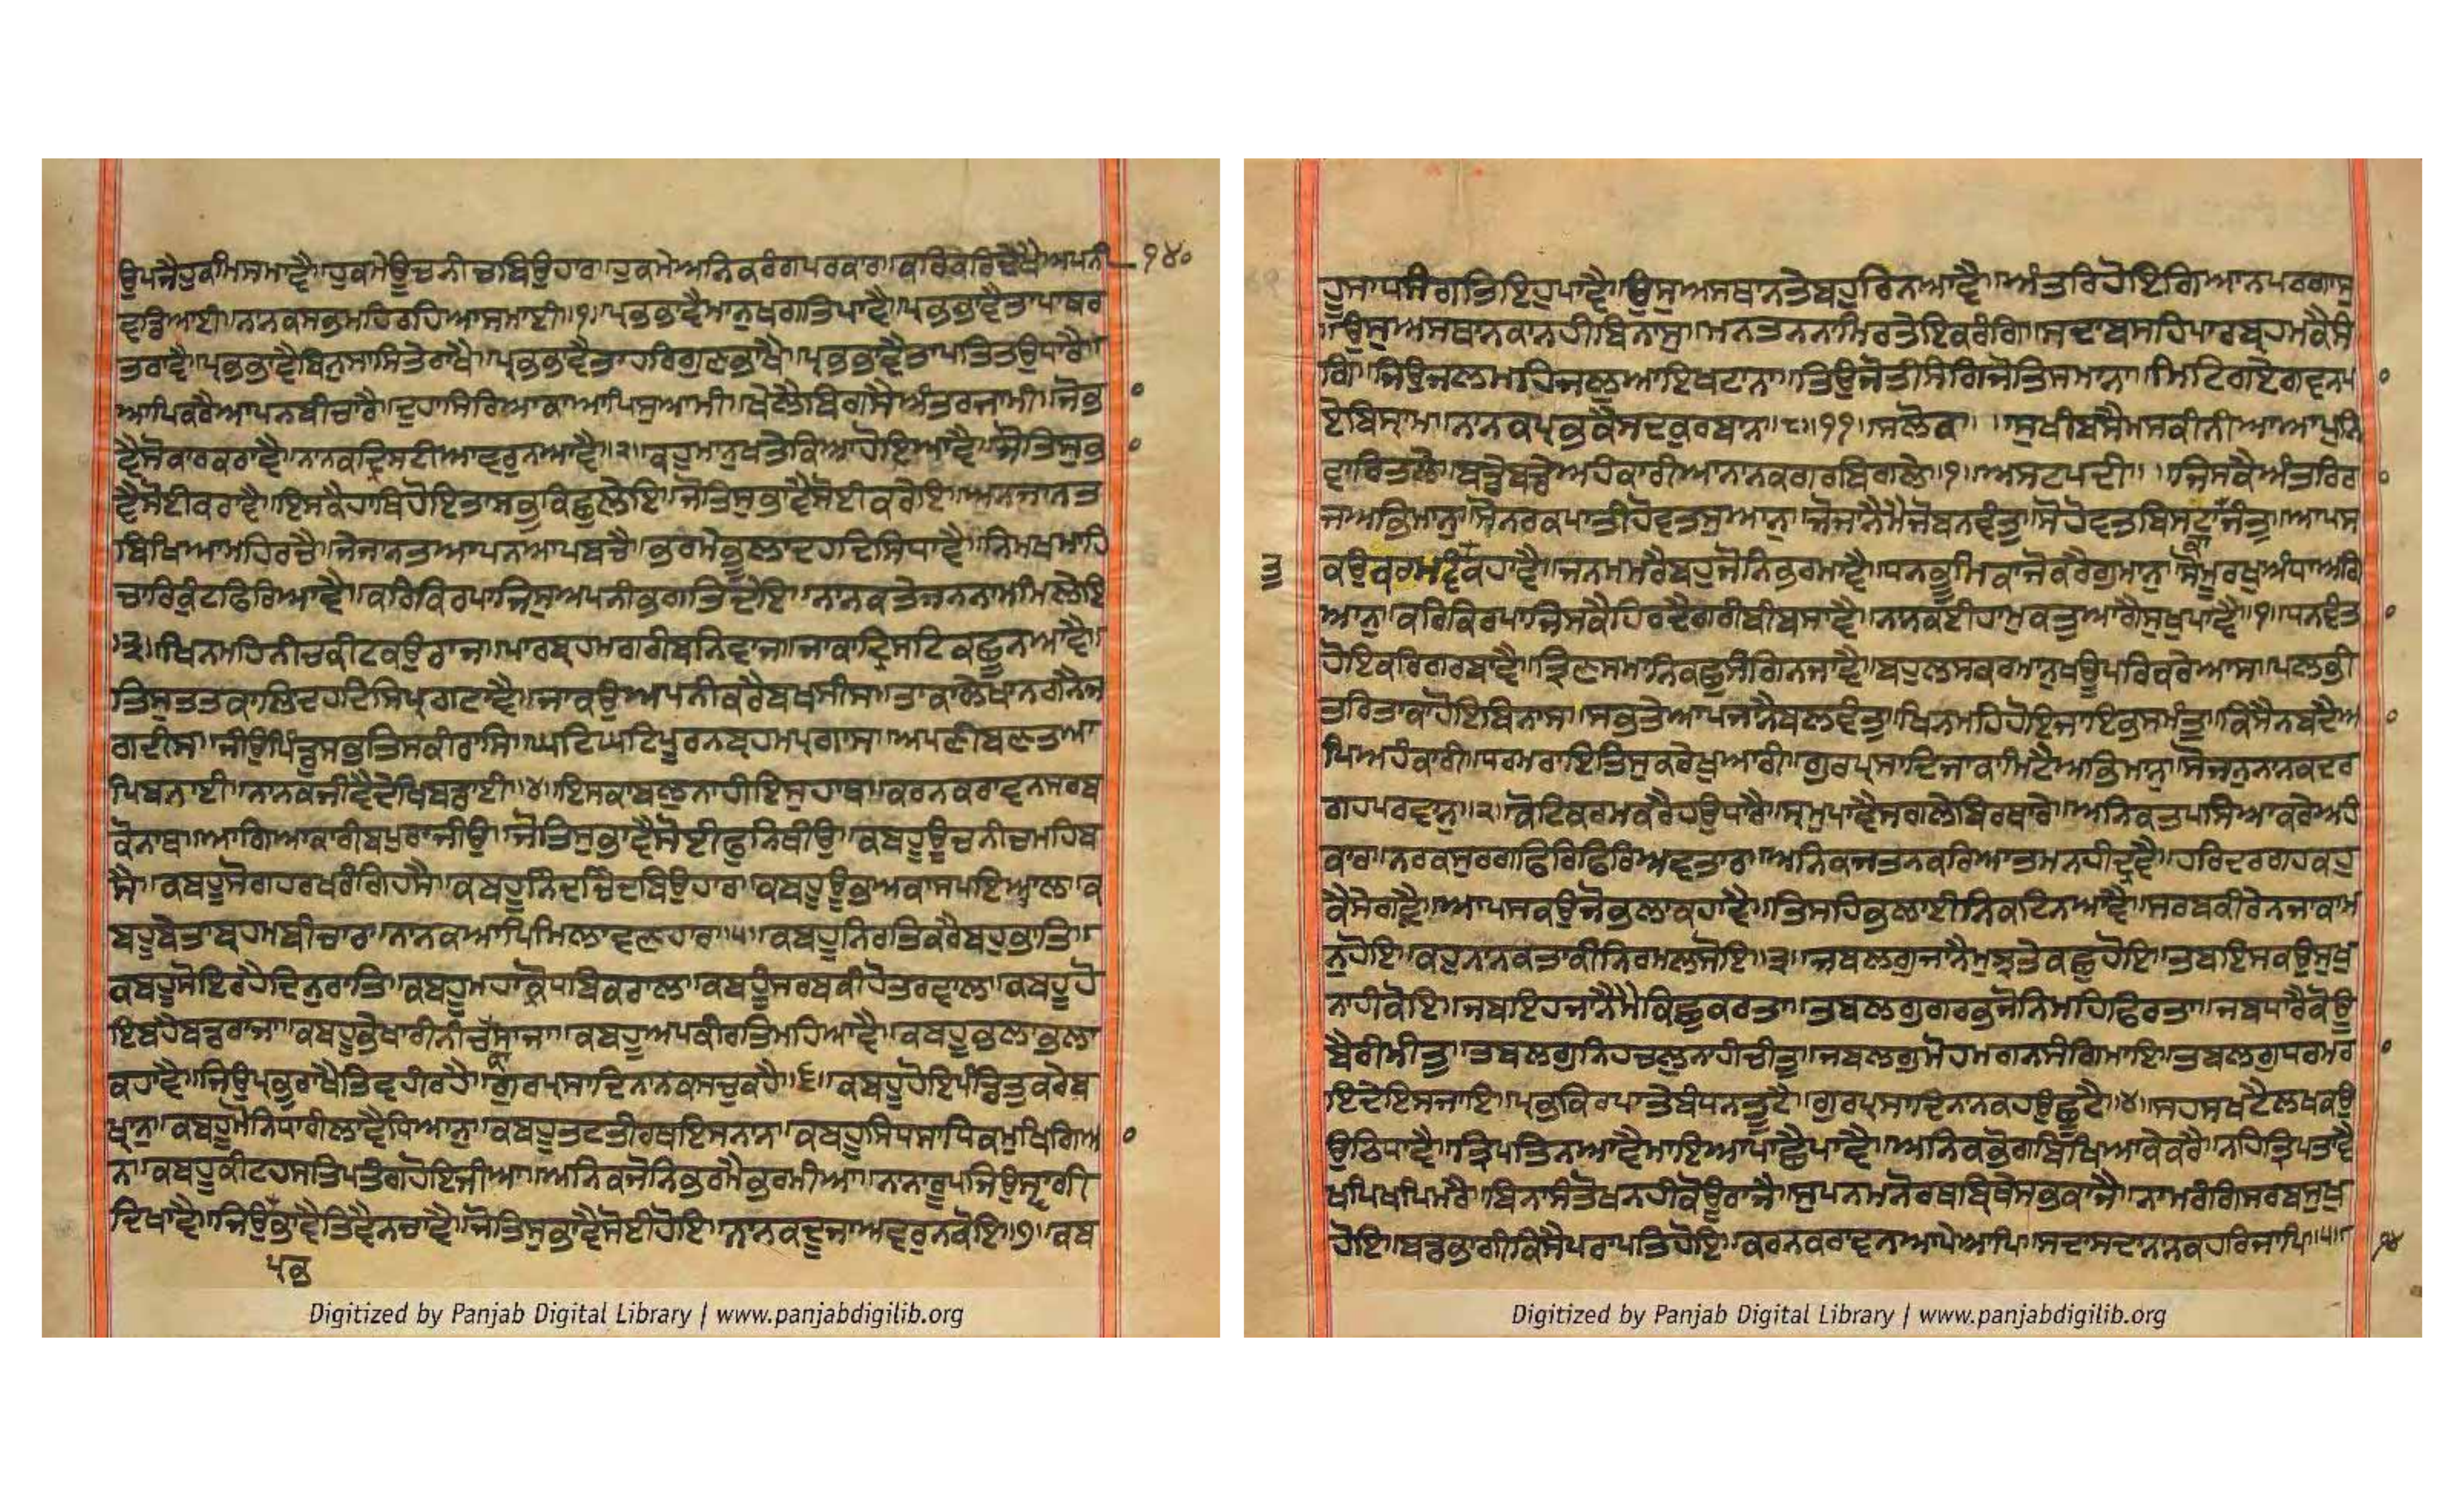 ਉਪਜੈਹੁਕਮਿਸਮਾਵੈ॥ਹੁਕਮੇਊਚਨੀਚਬਿਉਹਾਰ॥ਹੁਕਮੇਅਨਿਕਰੰਗਪਰਕਾਰ॥ਕਰਿਕਰਿਵੇਖੈਅਪਨੀ ੧੪੦
ਵਡਿਆਈ॥ਨਾਨਕਸਭਮਹਿਰਹਿਆਸਮਾਈ॥੧॥ਪ੍ਰਭਭਾਵੈਮਾਨੁਖਗਤਿਪਾਵੈ॥ਪ੍ਰਭਭਾਵੈਤਾਪਾਥਰ
ਤਰਾਵੈ॥ਪ੍ਰਭਭਾਵੈਬਿਨੁਸਾਸਤੇਰਾਖੈ॥ਪ੍ਰਭਭਾਵੈਤਾਹਰਿਗੁਣਭਾਖੈ॥ਪ੍ਰਭਭਾਵੈਤਾਪਤਿਤਉਧਾਰੈ॥
ਆਪਿਕਰੈਆਪਨਬੀਚਾਰੈ॥ਦੁਹਾਸਿਰਿਆਕਾਆਪਿਸੁਆਮੀ॥ਖੇਲੈਬਿਗਸੈਅੰਤਰਜਾਮੀ॥ਜੋਭਾ
ਵੈਸੋਕਾਰਕਰਾਵੈ॥ਨਾਨਕਦ੍ਰਿਸਟੀਅਵਰੁਨਆਵੈ॥੨॥ਕਹੁਮਾਨੁਖਤੇਕਿਆਹੋਇਆਵੈ॥ਜੋਤਿਸੁਭਾ
ਵੈਸੋਈਕਰਾਵੈ॥ਇਸਕੈਹਾਥਿਹੋਇਤਾਸਭੁਕਿਛੁਲੇਇ॥ਜੋਤਿਸੁਭਾਵੈਸੋਈਕਰੇਇ॥ਅਨਜਾਨਤ
ਬਿਖਿਆਮਹਿਰਚੈ॥ਜੇਜਾਨਤਆਪਨਆਪਬਚੈ॥ਭਰਮੇਭੂਲਾਦਹਦਿਸਿਧਾਵੈ॥ਨਿਮਖਮਾਹਿ
ਚਾਰਿਕੁੰਟਫਿਰਿਆਵੈ॥ਕਰਿਕਿਰਪਾਜਿਸੁਅਪਨੀਭਗਤਿਦੇਇ॥ਨਾਨਕਤੇਜਨਨਾਮਿਮਿਲੇਇ
॥੩॥ਖਿਨਮਹਿਨੀਚਕੀਟਕਉਰਾਜ॥ਪਾਰਬ੍ਰਹਮਗਰੀਬਨਿਵਾਜ॥ਜਾਕਾਦ੍ਰਿਸਟਿਕਛੂਨਆਵੈ॥
ਤਿਸੁਤਤਕਾਲਿਦਹਦਿਸਿਪ੍ਰਗਟਾਵੈ॥ਜਾਕਉਅਪਨੀਕਰੈਬਖਸੀਸ॥ਤਾਕਾਲੇਖਾਨਗਨੈਜ
ਗਦੀਸ॥ਜੀਉਪਿੰਡੁਸਭਤਿਸਕੀਰਾਸਿ॥ਘਟਿਘਟਿਪੂਰਨਬ੍ਰਹਮਪ੍ਰਗਾਸ॥ਅਪਣੀਬਣਤਆ
ਪਿਬਨਾਈ॥ਨਾਨਕਜੀਵੈਦੇਖਿਬਡਾਈ॥੪॥ਇਸਕਾਬਲੁਨਾਹੀਇਸੁਹਾਥ॥ਕਰਨਕਰਾਵਨਸਰਬ
ਕੋਨਾਥ॥ਆਗਿਆਕਾਰੀਬਪੁਰਾਜੀਉ॥ਜੋਤਿਸੁਭਾਵੈਸੋਈਫੁਨਿਥੀਉ॥ਕਬਹੂਊਚਨੀਚਮਹਿਬ
ਸੈ॥ਕਬਹੂਸੋਗਹਰਖਰੰਗਿਹਸੈ॥ਕਬਹੂਨਿੰਦਚਿੰਦਬਿਉਹਾਰ॥ਕਬਹੂਊਭਅਕਾਸਪਇਆਲ॥ਕ
ਬਹੂਬੇਤਾਬ੍ਰਹਮਬੀਚਾਰ॥ਨਾਨਕਆਪਿਮਿਲਾਵਣਹਾਰ॥੫॥ਕਬਹੂਨਿਰਤਿਕਰੈਬਹੁਭਾਤਿ॥
ਕਬਹੂਸੋਇਰਹੈਦਿਨੁਰਾਤਿ॥ਕਬਹੂਮਹਾਕ੍ਰੋਧਬਿਕਰਾਲ॥ਕਬਹੂੰਸਰਬਕੀਹੋਤਰਵਾਲ॥ਕਬਹੂਹੋ
ਇਬਹੈਬਡਰਾਜਾ॥ਕਬਹੁਭੇਖਾਰੀਨੀਚਸਾਜਾ॥ਕਬਹੂਅਪਕੀਰਤਿਮਹਿਆਵੈ॥ਕਬਹੂਭਲਾਭਲਾ
ਕਹਾਵੈ॥ਜਿਉਪ੍ਰਭੁਰਾਖੈਤਿਵਹੀਰਹੈ॥ਗੁਰਪ੍ਰਸਾਦਿਨਾਨਕਸਚੁਕਹੈ॥੬॥ਕਬਹੂਹੋਇਪੰਡਿਤੁਕਰੇਬ
ਖ੍ਯਾਨੁ॥ਕਬਹੂਮੋਨਿਧਾਰੀਲਾਵੈਧਿਆਨੁ॥ਕਬਹੂਤਟਤੀਰਥਇਸਨਾਨ॥ਕਬਹੂਸਿਧਸਾਧਿਕਮੁਖਿਗਿਆ
ਨ॥ਕਬਹੂਕੀਟਹਸਤਿਪਤੰਗਹੋਇਜੀਆ॥ਅਨਿਕਜੋਨਿਭਰਮੈਭਰਮੀਆ॥ਨਾਨਾਰੂਪਜਿਉਸ੍ਵਾਗੀ
ਦਿਖਾਵੈ॥ਜਿਉਭਾਵੈਤਿਵੈਨਚਾਵੈ॥ਜੋਤਿਸੁਭਾਵੈਸੋਈਹੋਇ॥ਨਾਨਕਦੂਜਾਅਵਰੁਨਕੋਇ॥੭॥ਕਬ
ਪ੍ਰਭ
Digitized by Panjab Digital Library | www.panjabdigilib.org
ਹੂਸਾਧਸੰਗਤਿਇਹੁਪਾਵੈ॥ਉਸੁਅਸਥਾਨਤੇਬਹੁਰਿਨਆਵੈ॥ਅੰਤਰਿਹੋਇਗਿਆਨਪਰਗਾਸੁ
॥ਉਸੁਅਸਥਾਨਕਾਨਹੀਬਿਨਾਸੁ॥ਮਨਤਨਨਾਮਿਰਤੇਇਕਰੰਗਿ॥ਸਦਾਬਸਹਿਪਾਰਬ੍ਰਹਮਕੈਸੰ
ਗਿ॥ਜਿਉਜਲਮਹਿਜਲੁਆਇਖਟਾਨਾ॥ਤਿਉਜੋਤੀਸੰਗਿਜੋਤਿਸਮਾਨਾ॥ਮਿਟਿਗਏਗਵਨਪਾ
ਏਬਿਸ੍ਰਾਮ॥ਨਾਨਕਪ੍ਰਭਕੈਸਦਕੁਰਬਾਨ॥੮॥੧੧॥ਸਲੋਕ॥ ॥ਸੁਖੀਬਸੈਮਸਕੀਨੀਆਆਪੁਨਿ
ਵਾਰਿਤਲੇ॥ਬਡੇਬਡੇਅਹੰਕਾਰੀਆਨਾਨਕਗਰਬਿਗਲੇ॥੧॥ਅਸਟਪਦੀ॥ ॥ਜਿਸਕੈਅੰਤਰਿਰਾ
ਜਅਭਿਮਾਨੁ॥ਸੋਨਰਕਪਾਤੀਹੋਵਤਸੁਆਨੁ॥ਜੋਜਾਨੈਮੈਜੋਬਨਵੰਤੁ॥ਸੋਹੋਵਤਬਿਸਟਾਕਾਜੰਤੁ॥ਆਪਸ
ਕਉਕਰਮਵੰਤਿਕਹਾਵੈ॥ਜਨਮਮਰੈਬਹੁਜੋਨਿਭਰਮਾਵੈ॥ਧਨਭੂਮਿਕਾਜੋਕਰੈਗੁਮਾਨੁ॥ਸੋਮੂਰਖੁਅੰਧਾਅਗਿ
ਆਨੁ॥ਕਰਿਕਿਰਪਾਜਿਸਕੈਹਿਰਦੈਗਰੀਬੀਬਸਾਵੈ॥ਨਾਨਕਈਹਾਮੁਕਤੁਆਗੈਸੁਖੁਪਾਵੈ॥੧॥ਧਨਵੰਤਾ
ਹੋਇਕਰਿਗਰਬਾਵੈ॥ਤ੍ਰਿਣਸਮਾਨਿਕਛੁਸੰਗਿਨਜਾਵੈ॥ਬਹੁਲਸਕਰਮਾਨੁਖਊਪਰਿਕਰੇਆਸ॥ਪਲਭੀ
ਤਰਿਤਾਕਾਹੋਇਬਿਨਾਸ॥ਸਭਤੇਆਪਜਾਨੈਬਲਵੰਤੁ॥ਖਿਨਮਹਿਹੋਇਜਾਇਭਸਮੰਤੁ॥ਕਿਸੈਨਬਦੈਆ
ਪਿਅਹੰਕਾਰੀ॥ਧਰਮਰਾਇਤਿਸੁਕਰੇਖੁਆਰੀ॥ਗੁਰਪ੍ਰਸਾਦਿਜਾਕਾਮਿਟੈਅਭਿਮਾਨੁ॥ਸੋਜਨੁਨਾਨਕਦਰ
ਗਹਪਰਵਾਨੁ॥੨॥ਕੋਟਿਕਰਮਕਰੈਹਉਧਾਰੈ॥ਸ੍ਰਮੁਪਾਵੈਸਗਲੇਬਿਰਥਾਰੇ॥ਅਨਿਕਤਪਸਿਆਕਰੇਅਹੰ
ਕਾਰ॥ਨਰਕਸੁਰਗਫਿਰਿਫਿਰਿਅਵਤਾਰ॥ਅਨਿਕਜਤਨਕਰਿਆਤਮਨਹੀਦ੍ਰਵੈ॥ਹਰਿਦਰਗਹਕਹੁ
ਕੈਸੇਗਵੈ॥ਆਪਸਕਉਜੋਭਲਾਕਹਾਵੈ॥ਤਿਸਹਿਭਲਾਈਨਿਕਟਿਨਆਵੈ॥ਸਰਬਕੀਰੇਨਜਾਕਾਮ
ਨੁਹੋਇ॥ਕਹੁਨਾਨਕਤਾਕੀਨਿਰਮਲਸੋਇ॥੩॥ਜਬਲਗੁਜਾਨੈਮੁਝਤੇਕਛੁਹੋਇ॥ਤਬਇਸਕਉਸੁਖੁ
ਨਾਹੀਕੋਇ॥ਜਬਇਹਜਾਨੈਮੈਕਿਛੁਕਰਤਾ॥ਤਬਲਗੁਗਰਭਜੋਨਿਮਹਿਫਿਰਤਾ॥ਜਬਧਾਰੈਕੋਊ
ਬੈਰੀਮੀਤੁ॥ਤਬਲਗੁਨਿਹਚਲੁਨਾਹੀਚੀਤੁ॥ਜਬਲਗੁਮੋਹਮਗਨਸੰਗਿਮਾਇ॥ਤਬਲਗੁਧਰਮਰਾ
ਇਦੇਇਸਜਾਇ॥ਪ੍ਰਭਕਿਰਪਾਤੇਬੰਧਨਤੂਟੈ॥ਗੁਰਪ੍ਰਸਾਦਿਨਾਨਕਹਉਛੂਟੈ॥੪॥ਸਹਸਖਟੇਲਖਕਉ
ਉਠਿਧਾਵੈ॥ਤ੍ਰਿਪਤਿਨਆਵੈਮਾਇਆਪਾਛੈਪਾਵੈ॥ਅਨਿਕਭੋਗਬਿਖਿਆਕੇਕਰੈ॥ਨਹਤ੍ਰਿਪਤਾਵੈ
ਖਪਿਖਪਿਮਰੈ॥ਬਿਨਾਸੰਤੋਖਨਹੀਕੋਊਰਾਜੈ॥ਸੁਪਨਮਨੋਰਥਬ੍ਰਿਥੇਸਭਕਾਜੈ॥ਨਾਮਰੰਗਿਸਰਬਸੁਖੁ
ਹੋਇ॥ਬਡਭਾਗੀਕਿਸੈਪਰਾਪਤਿਹੋਇ॥ਕਰਨਕਰਾਵਨਆਪੇਆਪਿ॥ਸਦਾਸਦਾਨਾਨਕਹਰਿਜਾਪਿ॥੫॥
Digitized by Panjab Digital Library | www.panjabdigilib.org